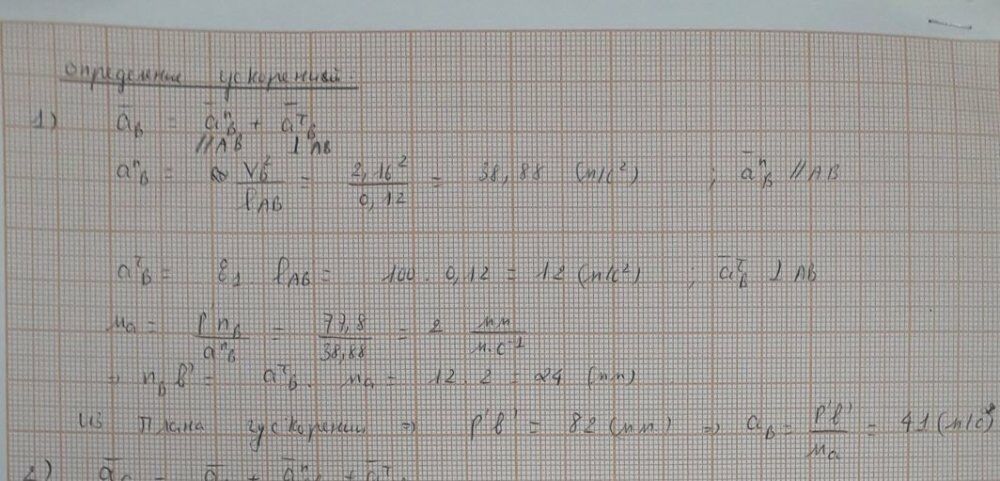 определение ускорений
1) a̅_B = a̅ⁿ_B + a̅^τ_B
//AB ⊥ AB
aⁿ_B = V_B² / l_AB = 2,16² / 0,12 = 38,88 (m/c²) ; a̅ⁿ_B // AB
a^τ_B = ε₁ · l_AB = 100 · 0,12 = 12 (m/c²) ; a̅^τ_B ⊥ AB
μ_a = p'n_B / aⁿ_B = 77,8 / 38,88 = 2 мм / м·с⁻¹
⇒ n_b b' = a^τ_B · μ_a = 12 · 2 = 24 (mm)
из плана ускорений ⇒ p'b' = 82 (mm) ⇒ a_B = p'b' / μ_a = 41 (m/c²)
2)